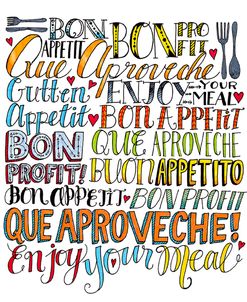 BON APPETIT BON PROFIT
Que Aproveche
Gutten Appetit ENJOY YOUR MEAL
BON APPETIT
BON PROFIT! QUE APROVECHE
BUON APPETITO
BON APPETIT BON PROFIT
QUE APROVECHE!
Enjoy Your Meal